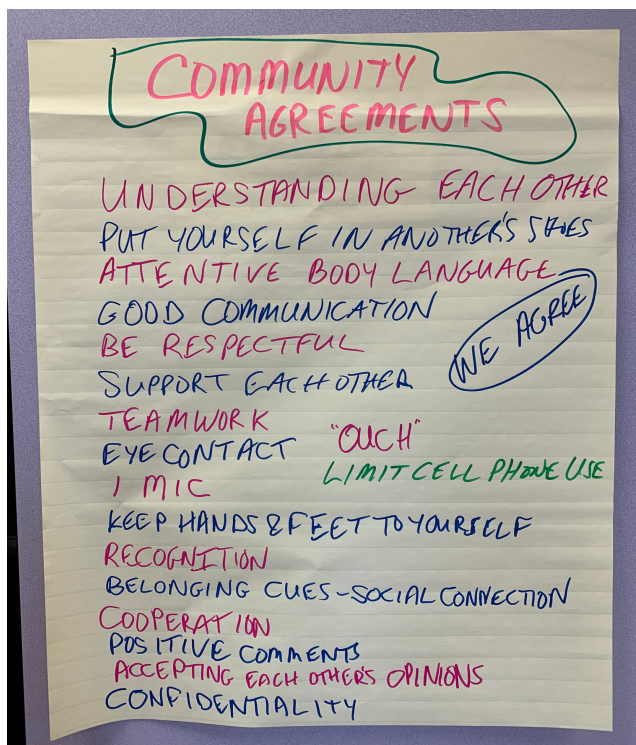 COMMUNITY
AGREEMENTS
UNDERSTANDING EACH OTHER
PUT YOURSELF IN ANOTHER'S SHOES
ATTENTIVE BODY LANGUAGE
GOOD COMMUNICATION
WE AGREE
BE RESPECTFUL
SUPPORT EACH OTHER
TEAMWORK
"OUCH"
EYE CONTACT
LIMIT CELL PHONE USE
1 MIC
KEEP HANDS & FEET TO YOURSELF
RECOGNITION
BELONGING CUES-SOCIAL CONNECTION
COOPERATION
POSITIVE COMMENTS
ACCEPTING EACH OTHER'S OPINIONS
CONFIDENTIALITY